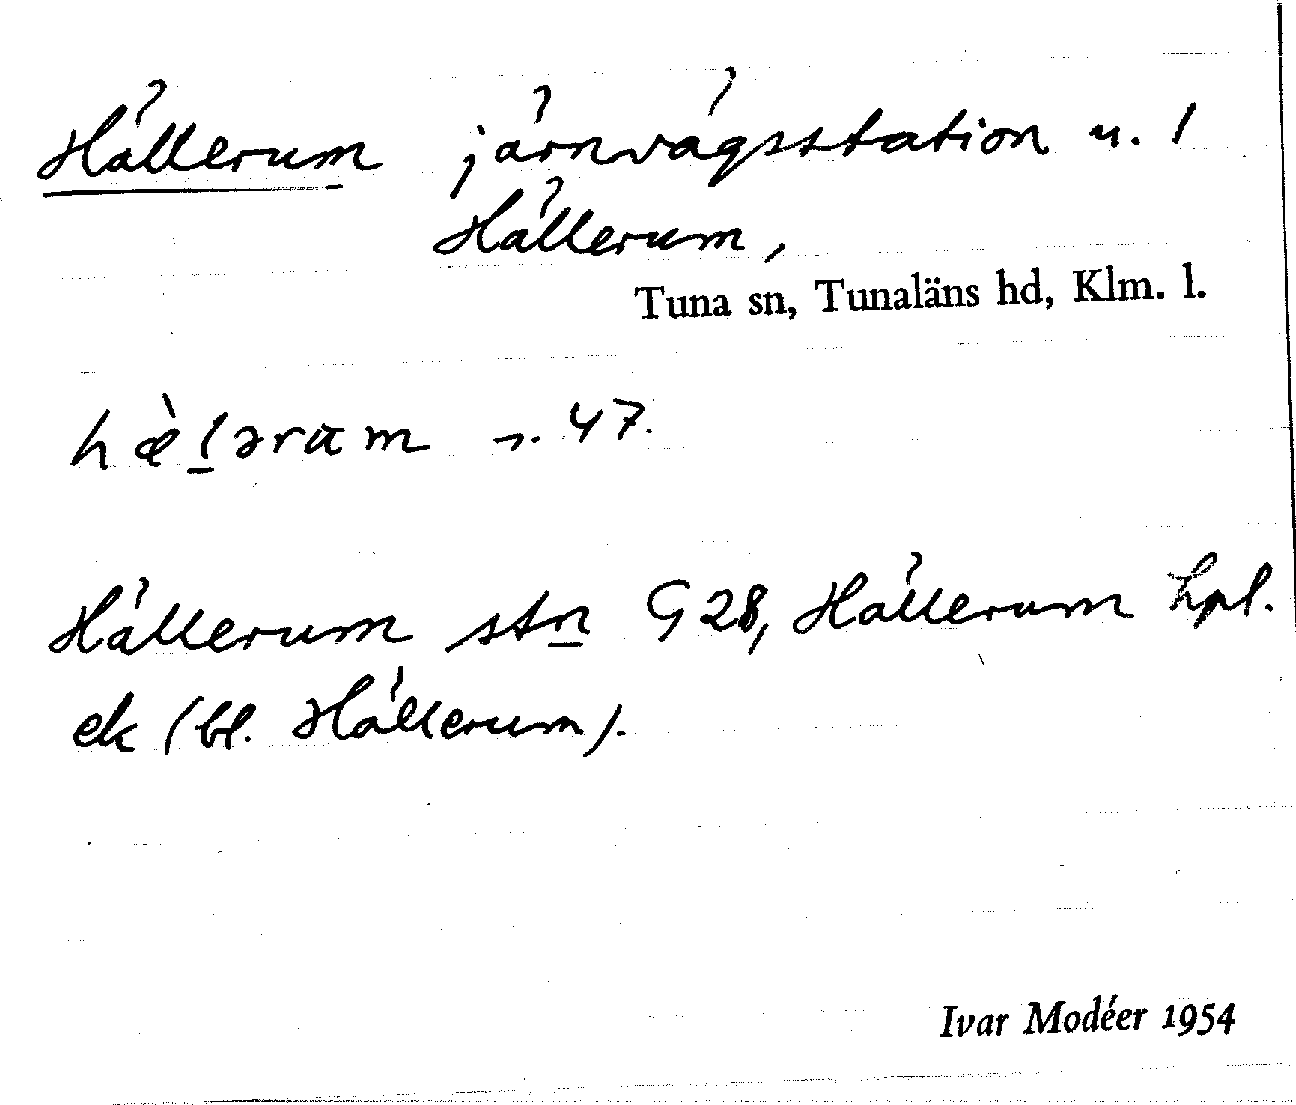 Hällerum järnvägsstation u. 1
Hällerum,
Tuna sn, Tunaläns hd, Klm. l.
hæ̀lərum 47.
Hällerum stn G28, Hällerum hpl.
ek (bl. Hällerum).
Ivar Modéer 1954